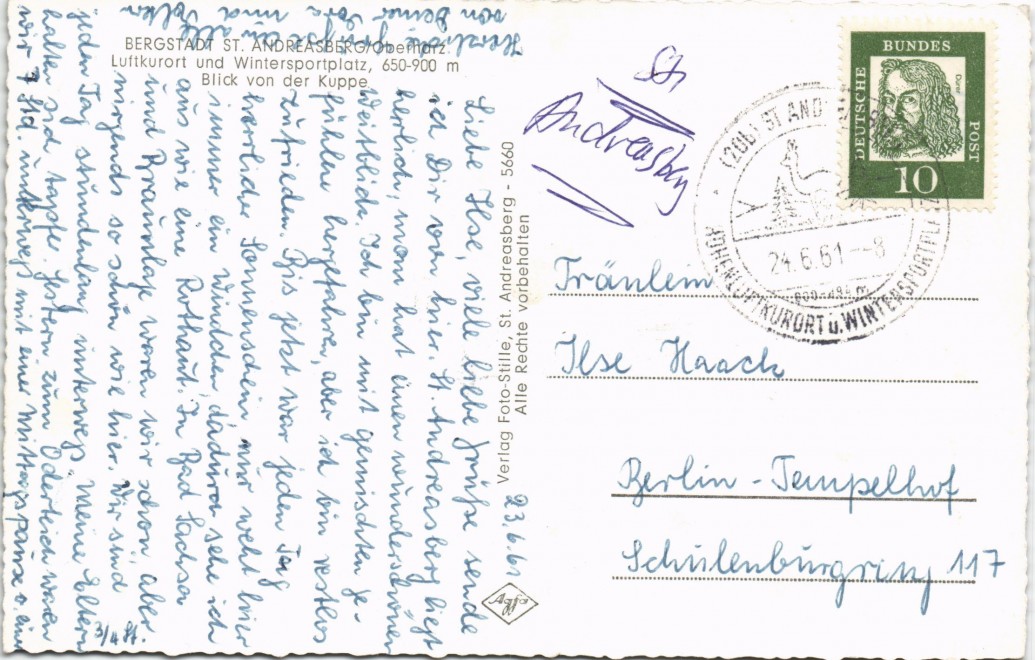 BERGSTADT ST. ANDREASBERG/Oberharz
Luftkurort und Wintersportplatz, 650-900 m
Blick von der Kuppe
23.6.61
Liebe Ilse, viele liebe Grüße sende
ich Dir von hier. St. Andreasberg liegt
herrlich, man hat einen wunderschönen
Weitblick. Ich bin mit gemischten Ge-
fühlen hergefahren, aber ich bin restlos
zufrieden. Bis jetzt war jeden Tag
herrlicher Sonnenschein nur weht hier
immer ein Windchen, dadurch sehe ich
aus wie eine Rothaut. In Bad Sachsa
und Braunlage waren wir schon aber
nirgends so schön wie hier. Wir sind
jeden Tag stundenlang unterwegs. Meine Eltern
halten sich tapfer. Gestern zum Oderteich waren
wir 7 Std. unterwegs mit einer Mittagspause v. einer
3/4 St.
Herzliche Grüße an alle
von Deiner Dora und
Verlag Foto-Stille, St. Andreasberg - 5660
Alle Rechte vorbehalten
Agfa
St
Andreasbg
DEUTSCHE
BUNDES
POST
Dürer
10
(20b) ST AND
24.6.61--8
HÖHENLUFTKURORT u. WINTERSPORTPLATZ
Fräulein
Ilse Haack
Berlin-Tempelhof
Schulenburgring 117